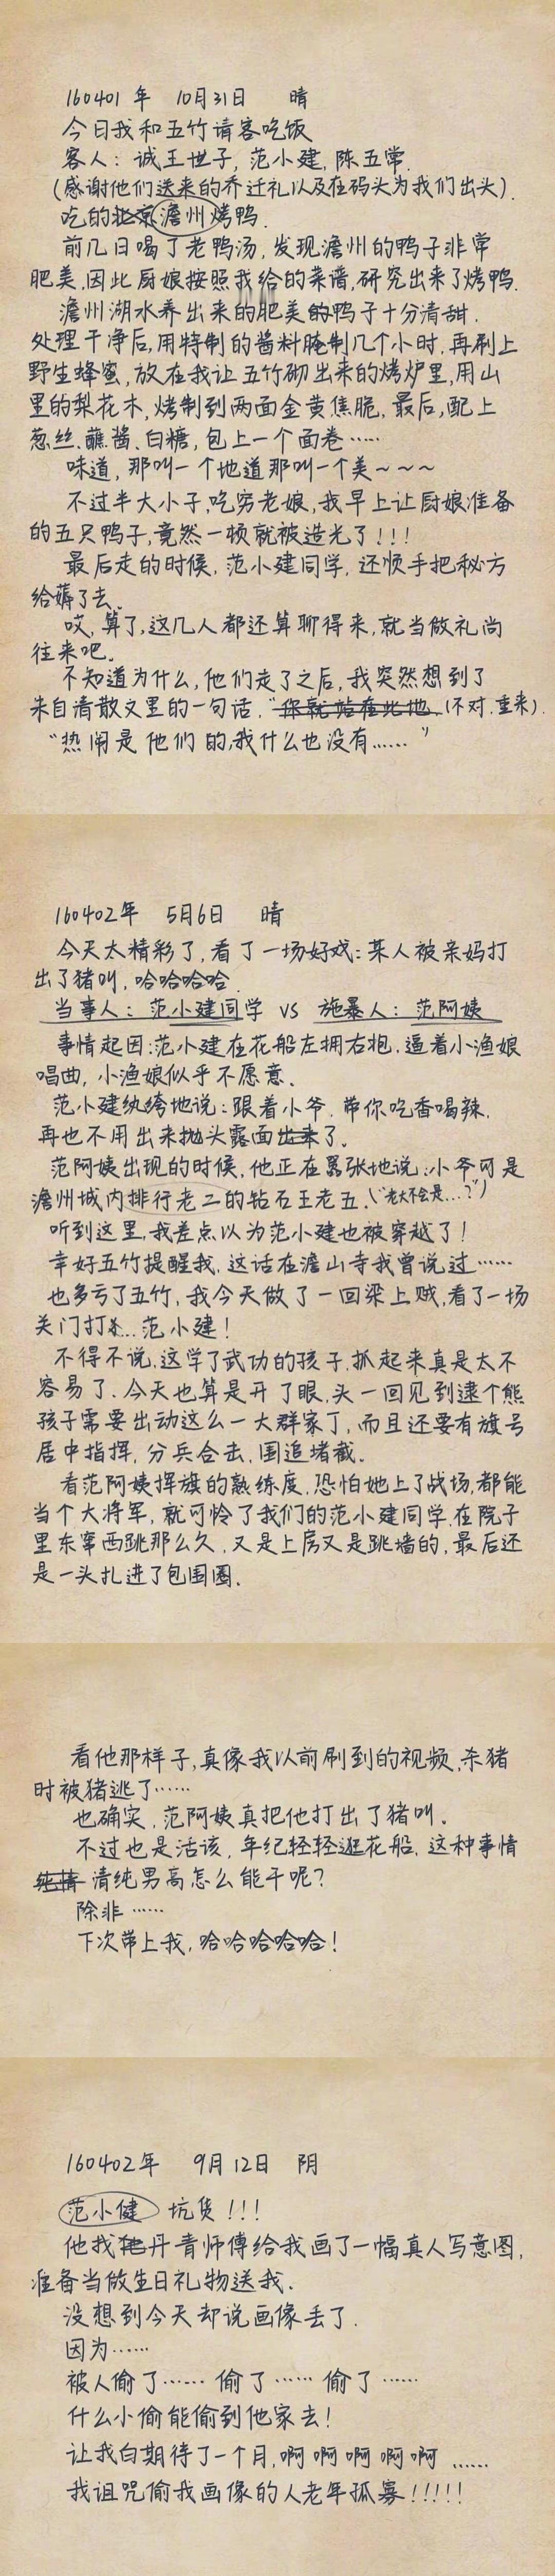 160401年 10月31日 晴
今日我和五竹请客吃饭
客人：诚王世子，范小建，陈五常.
（感谢他们送来的乔迁礼以及在码头为我们出头）.
吃的北京澹州烤鸭.
前几日喝了老鸭汤，发现澹州的鸭子非常
肥美，因此厨娘按照我给的菜谱，研究出来了烤鸭.
澹州湖水养出来的肥美的鸭子十分清甜.
处理干净后，用特制的酱料腌制几个小时，再刷上
野生蜂蜜，放在我让五竹砌出来的烤炉里，用山
里的梨花木，烤制到两面金黄焦脆，最后，配上
葱丝、蘸酱、白糖，包上一个面卷……
味道，那叫一个地道那叫一个美～～～
不过半大小子，吃穷老娘，我早上让厨娘准备
的五只鸭子，竟然一顿就被造光了！！！
最后走的时候，范小建同学，还顺手把秘方
给薅了去、
哎，算了，这几人都还算聊得来，就当做礼尚
往来吧。
不知道为什么，他们走了之后，我突然想到了
朱自清散文里的一句话，“你就站在此地、（不对，重来）.
“热闹是他们的，我什么也没有……”
160402年 5月6日 晴
今天太精彩了，看了一场好戏：某人被亲妈打
出了猪叫，哈哈哈哈.
当事人：范小建同学 VS 施暴人：范阿姨
事情起因：范小建在花船左拥右抱，逼着小渔娘
唱曲，小渔娘似乎不愿意.
范小建纨绔地说：跟着小爷，带你吃香喝辣.
再也不用出来抛头露面出来了.
范阿姨出现的时候，他正在嚣张地说：小爷可是
澹州城内排行老二的钻石王老五.（“老大不会是…？”）
听到这里，我差点以为范小建也被穿越了！
幸好五竹提醒我，这话在澹山寺我曾说过……
也多亏了五竹，我今天做了一回梁上贼，看了一场
关门打…范小建！
不得不说，这学了武功的孩子，抓起来真是太不
容易了、今天也算是开了眼，头一回见到逮个熊
孩子需要出动这么一大群家丁，而且还要有旗号
居中指挥，分兵合击，围追堵截.
看范阿姨挥旗的熟练度，恐怕她上了战场，都能
当个大将军，就可怜了我们的范小建同学，在院子
里东窜西跳那么久，又是上房又是跳墙的，最后还
是一头扎进了包围圈.
看他那样子，真像我以前刷到的视频，杀猪
时被猪逃了……
也确实，范阿姨真把他打出了猪叫。
不过也是活该，年纪轻轻逛花船，这种事情
纯情 清纯男高怎么能干呢？
除非……
下次带上我，哈哈哈哈哈！
160402年 9月12日 阴
范小健 坑货！！！
他找丹青师傅给我画了一幅真人写意图，
准备当做生日礼物送我.
没想到今天却说画像丢了.
因为……
被人偷了……偷了……偷了……
什么小偷能偷到他家去！
让我白期待了一个月，啊啊啊啊啊……
我诅咒偷我画像的人老年孤寡！！！！！